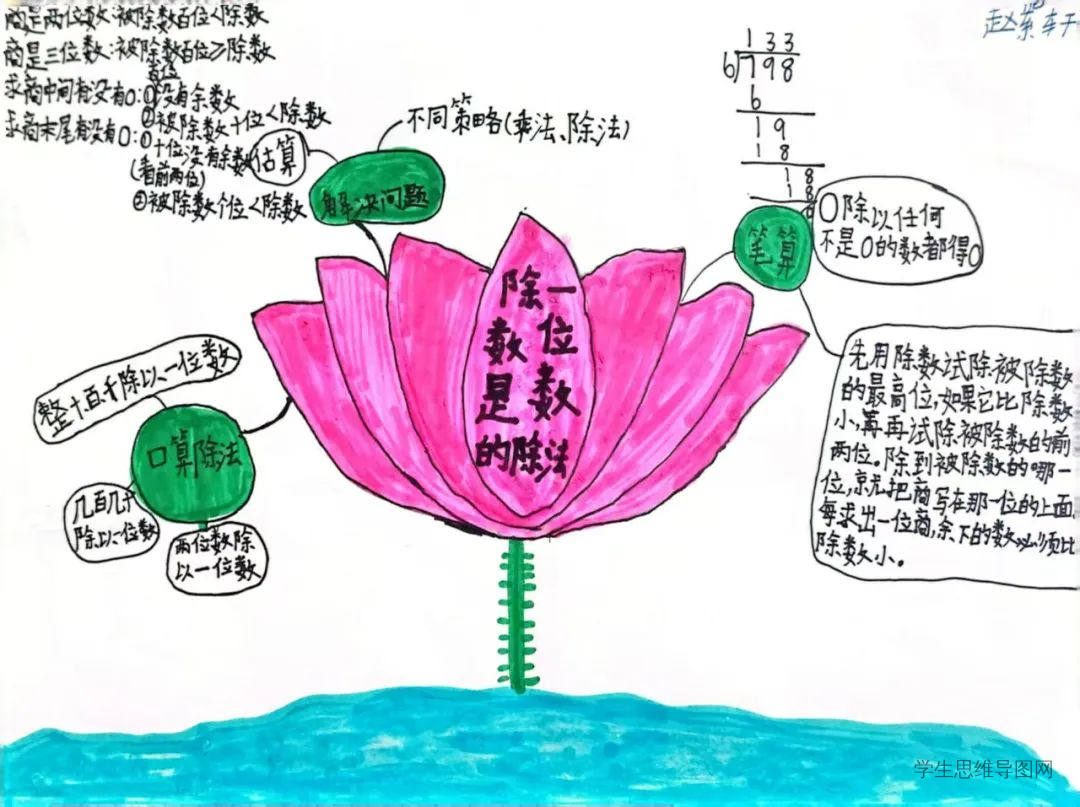 商是两位数:被除数百位<除数
商是三位数:被除数百位≥除数
首位
求商中间有没有0:①没有余数
②被除数十位<除数
求商末尾有没有0:①
十位没有余数
(看前两位)
②被除数个位<除数
估算
不同策略(乘法、除法)
解决问题
133
6 798
6
19
18
18
18
0
笔算
0除以任何
不是0的数都得0
先用除数试除被除数
的最高位,如果它比除数
小,再试除被除数的前
两位。除到被除数的哪一
位,就把商写在那一位的上面,
每求出一位商,余下的数必须比
除数小。
除数是
一位数
的除法
整十百千除以一位数
口算除法
几百几十
除以一位数
两位数除
以一位数
学生思维导图网